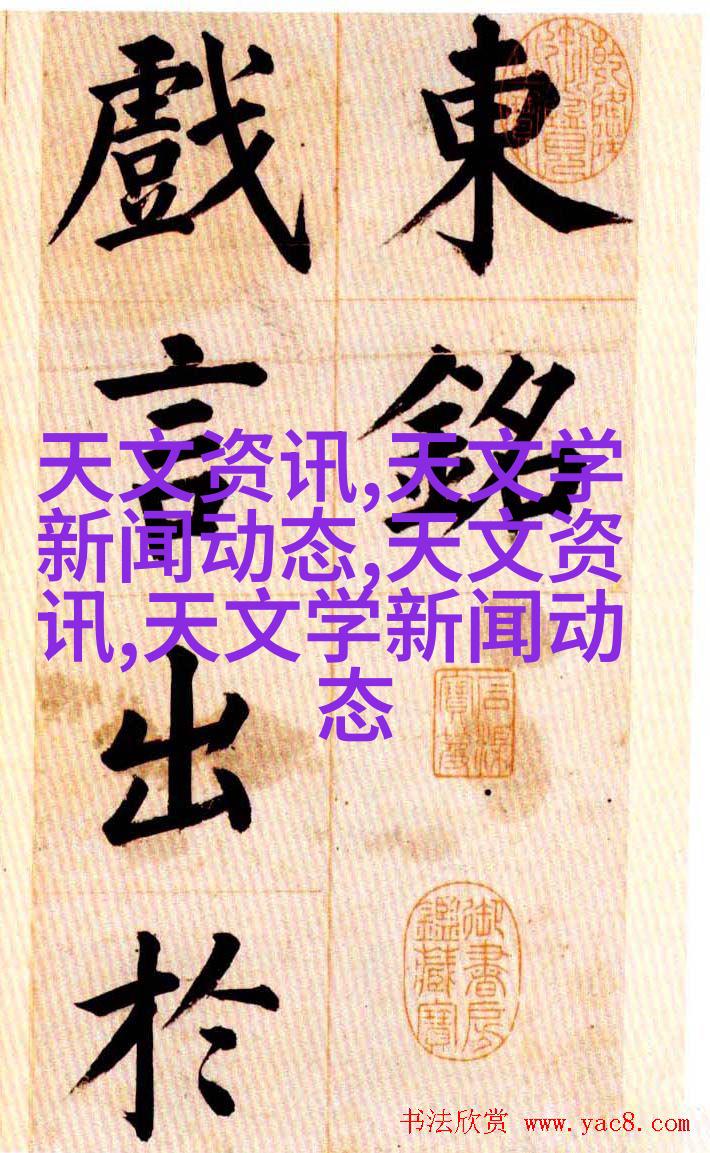 東銘
戲言出於
天文资讯,天文学
新闻动态,天文资
讯,天文学新闻动
态
御書房
鑑藏寶
书法欣赏 www.yac8.com